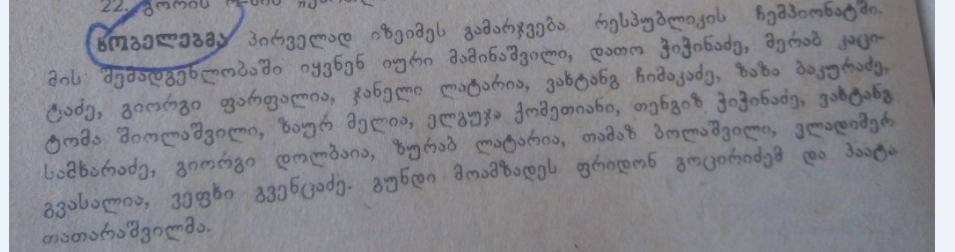 22. გორის
ხობელებმა პირველად იზეიმეს გამარჯვება რესპუბლიკის ჩემპიონატში.
მის შემადგენლობაში იყვნენ იური მამინაშვილი, დათო ჭიჭინაძე, მერაბ კაცი-
ტაძე, გიორგი ფარფალია, ჯანელი ლატარია, ვახტანგ ჩიმაკაძე, ზაზა ბაკურაძე,
ტომა შიოლაშვილი, ზაურ მელია, ელგუჯა ქომეთიანი, თენგიზ ჭიჭინაძე, ვახტანგ
სამხარაძე, გიორგი დოლბაია, ზურაბ ლატარია, თამაზ ბოლაშვილი, ვლადიმერ
გვასალია, ვეფხი გვენცაძე. გუნდი მოამზადეს ფრიდონ გოცირიძემ და პაატა
თათარაშვილმა.